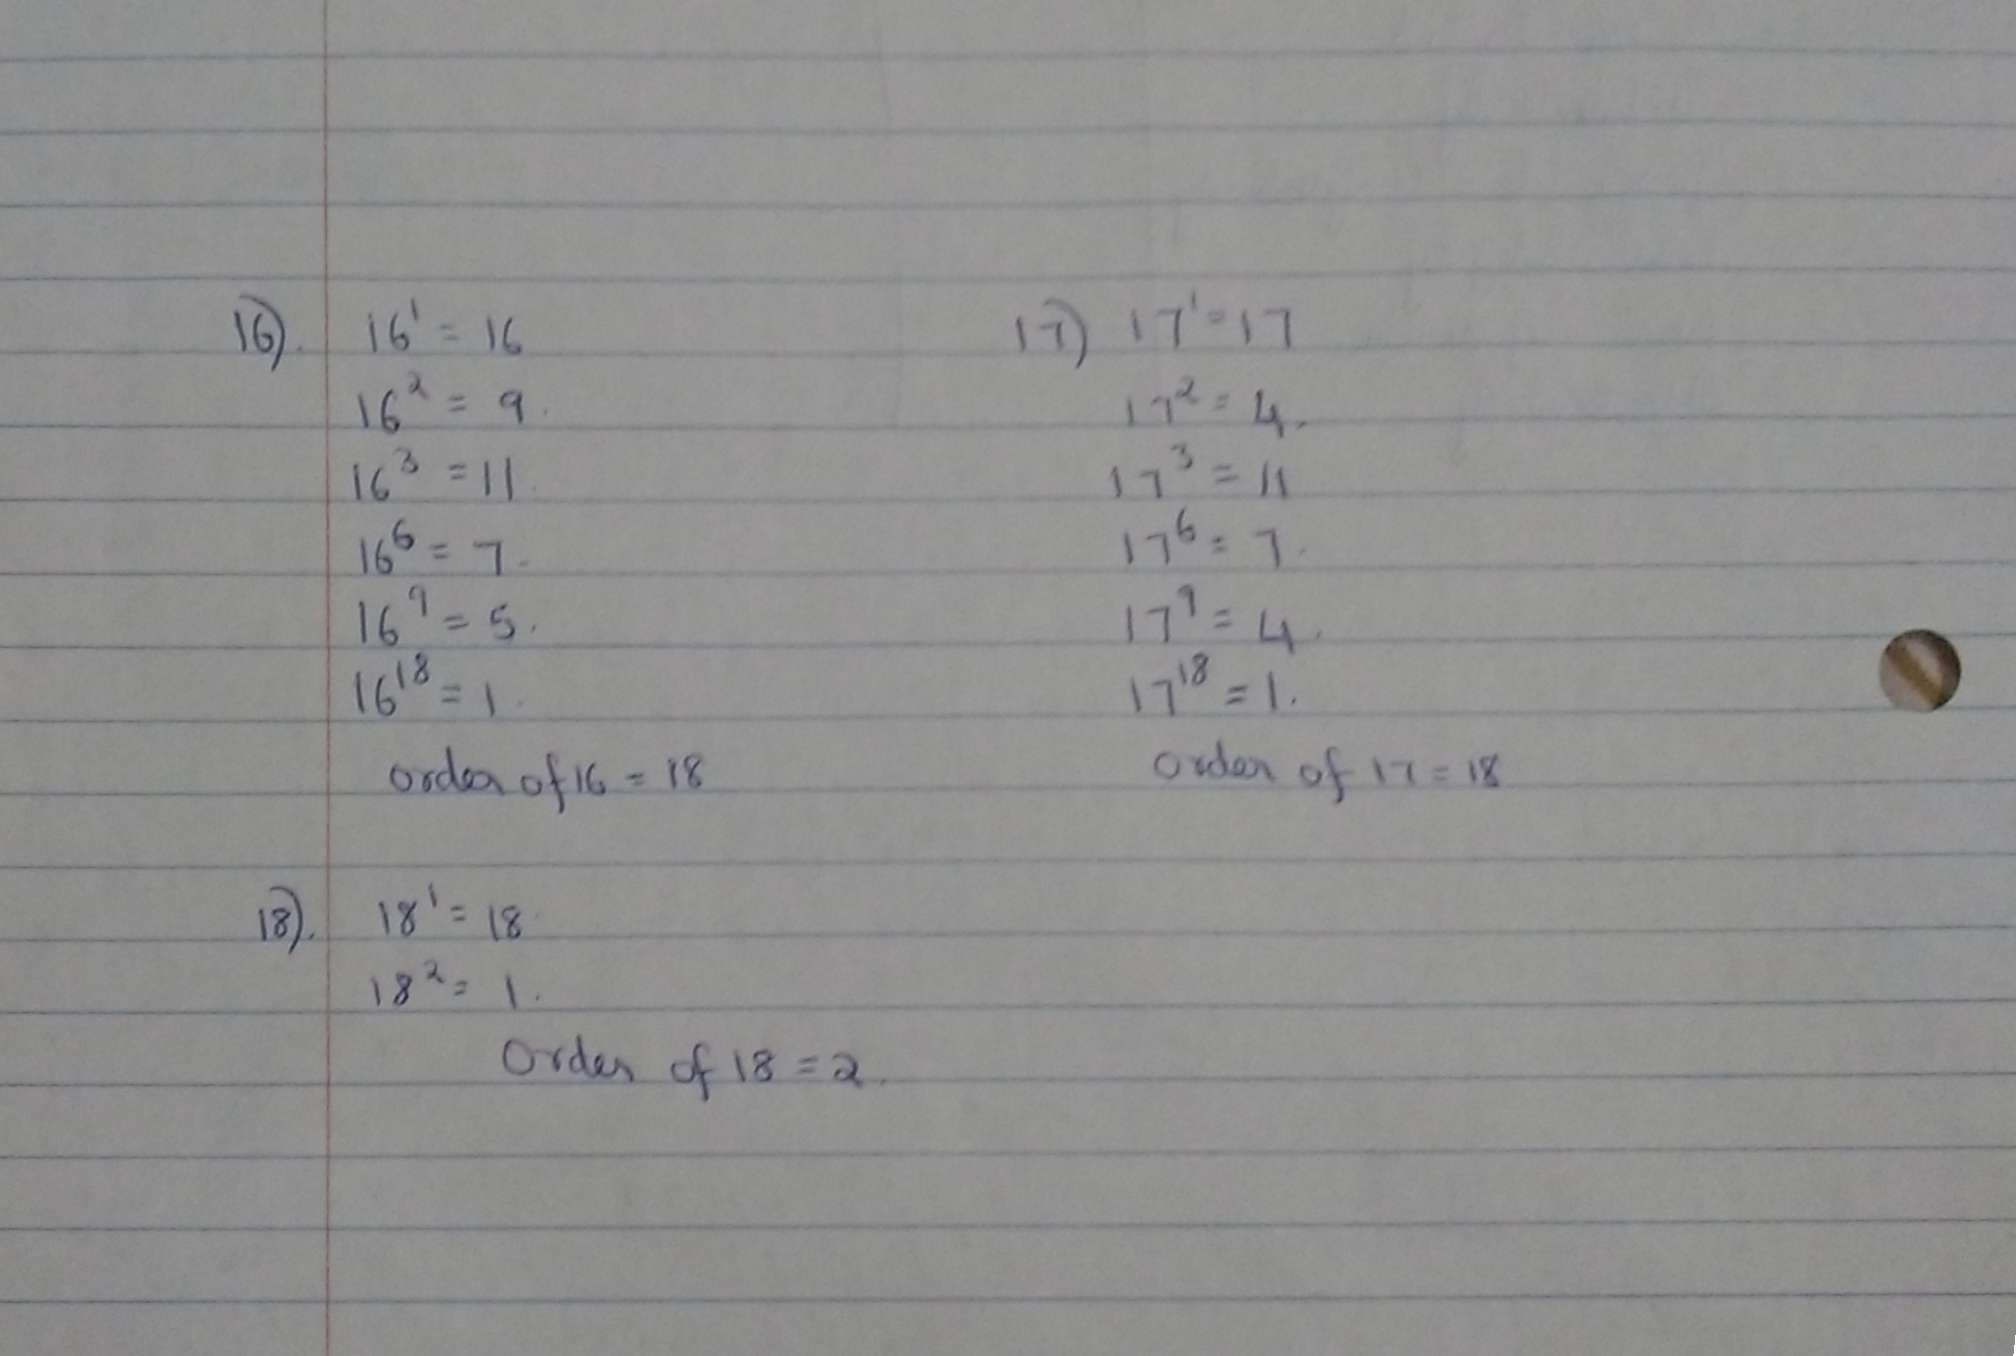 16). 16¹ = 16
16² = 9.
16³ = 11.
16⁶ = 7.
16⁹ = 5.
16¹⁸ = 1.
order of 16 = 18
17) 17¹ = 17
17² = 4.
17³ = 11
17⁶ = 7.
17⁹ = 4.
17¹⁸ = 1.
order of 17 = 18
18). 18¹ = 18
18² = 1.
Order of 18 = 2.